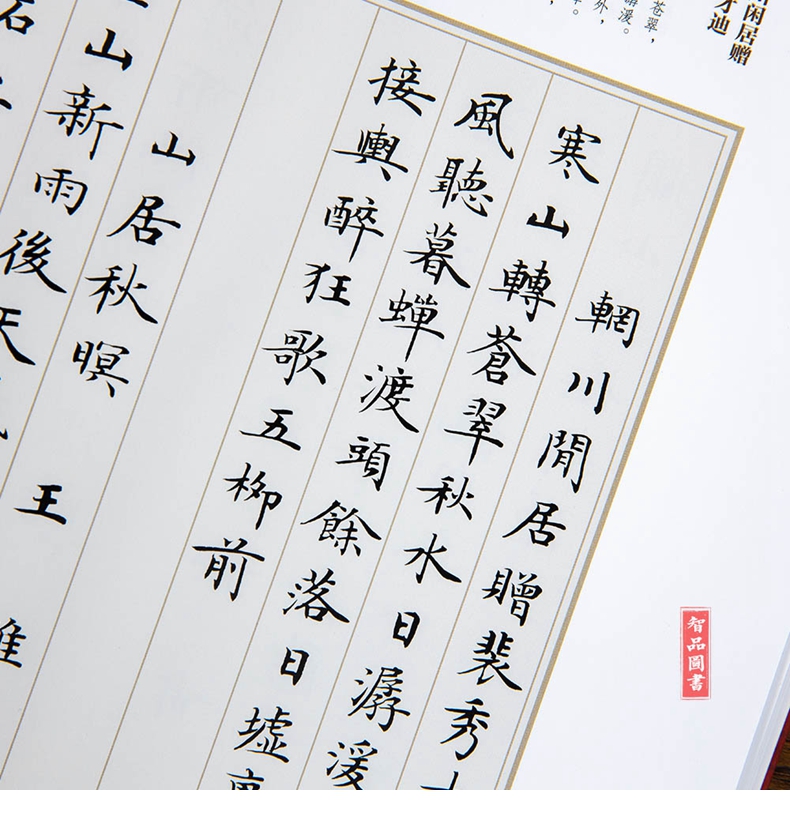 闲居赠
才迪
苍翠，
潺湲。
外，
輞川閒居贈裴秀
寒山轉蒼翠秋水日潺湲
風聽暮蟬渡頭餘落日墟裏
接輿醉狂歌五柳前
山居秋暝 王維
山新雨後天
石
智品圖書